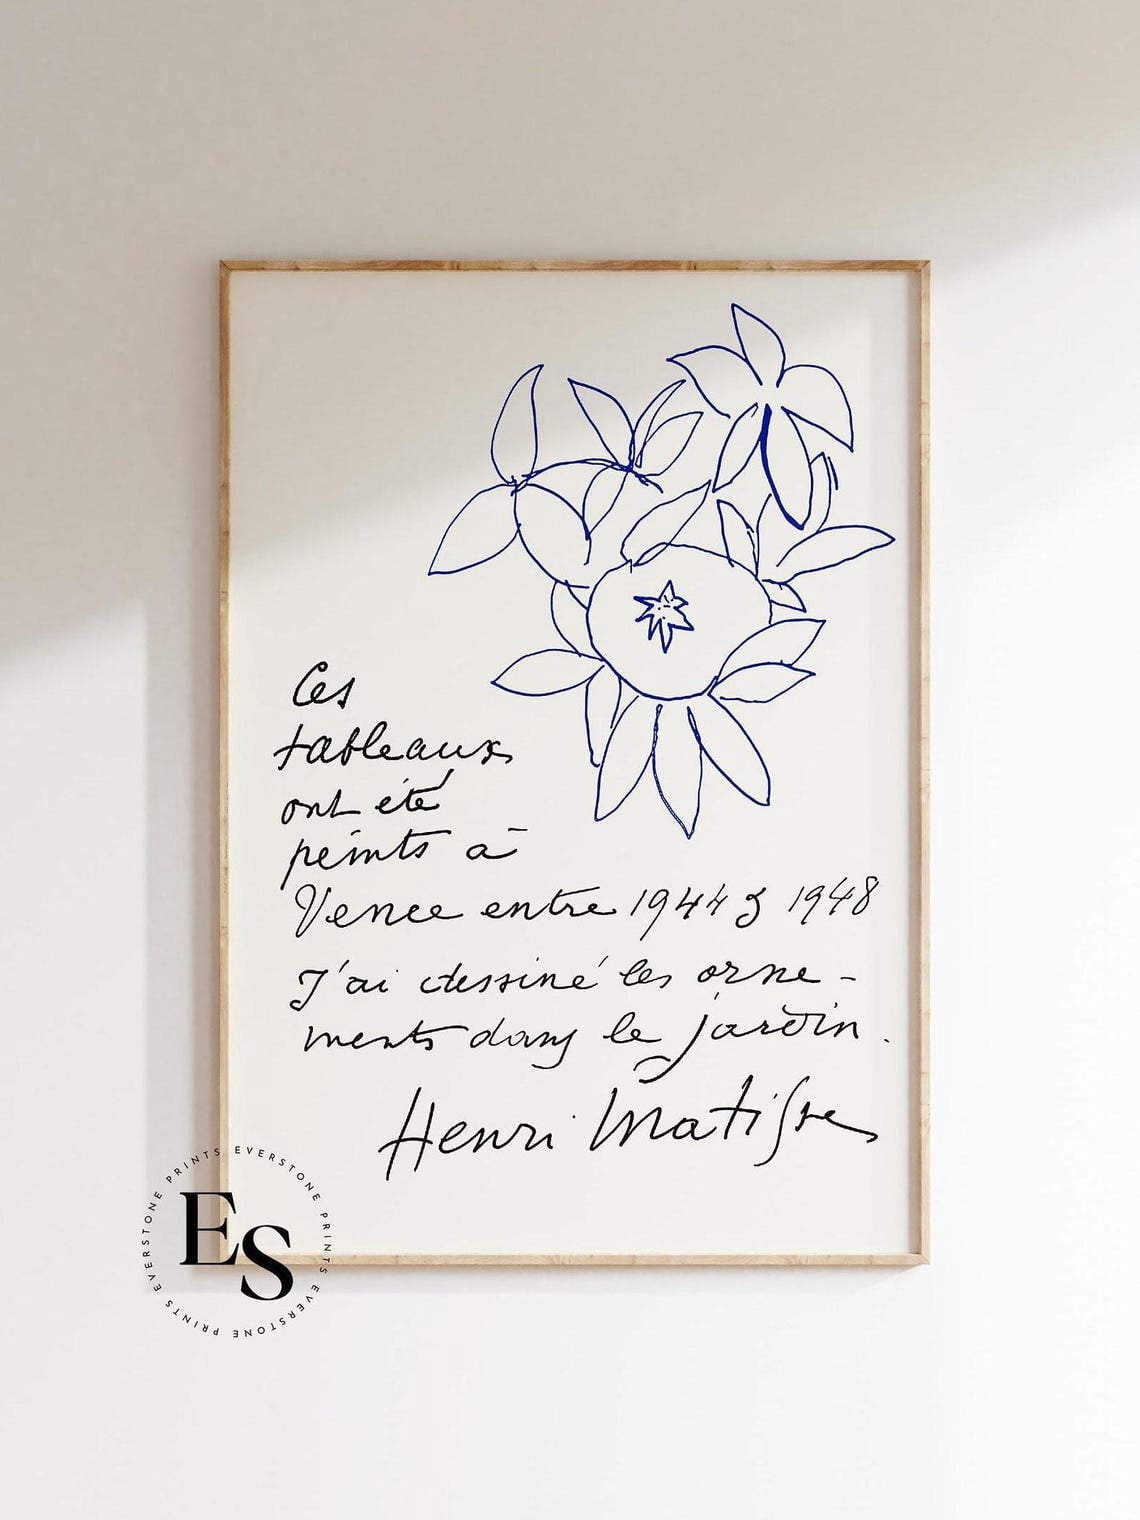 Ces
tableaux
ont été
peints à
Vence entre 1944 & 1948
J'ai dessiné les orne-
ments dans le jardin.
Henri Matisse
ES
EVERSTONE PRINTS EVERSTONE PRINTS EVERSTONE PRINTS EVERSTONE PRINTS